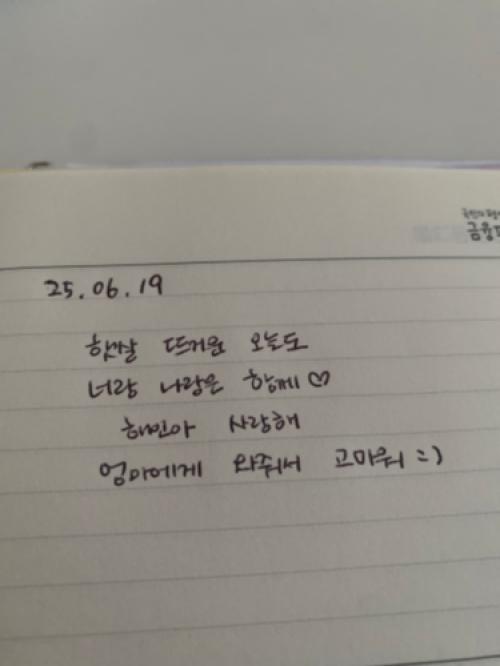 금융
25.06.19
햇살 뜨거운 오늘도
너랑 나랑은 함께♡
해인아 사랑해
엄마에게 와줘서 고마워 =)